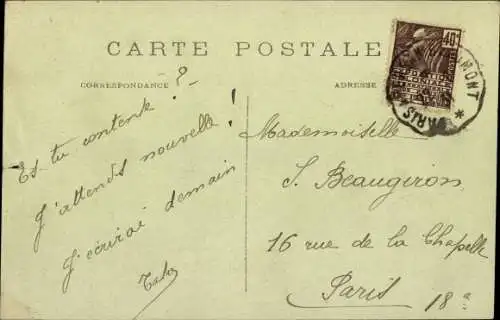 CARTE POSTALE
CORRESPONDANCE
ADRESSE
40c
MONT
PARIS
Es-tu contente ?
J'attends nouvelle !
J'écrirai demain
Mademoiselle
S. Beaugiron
16 rue de la Chapelle
Paris 18e